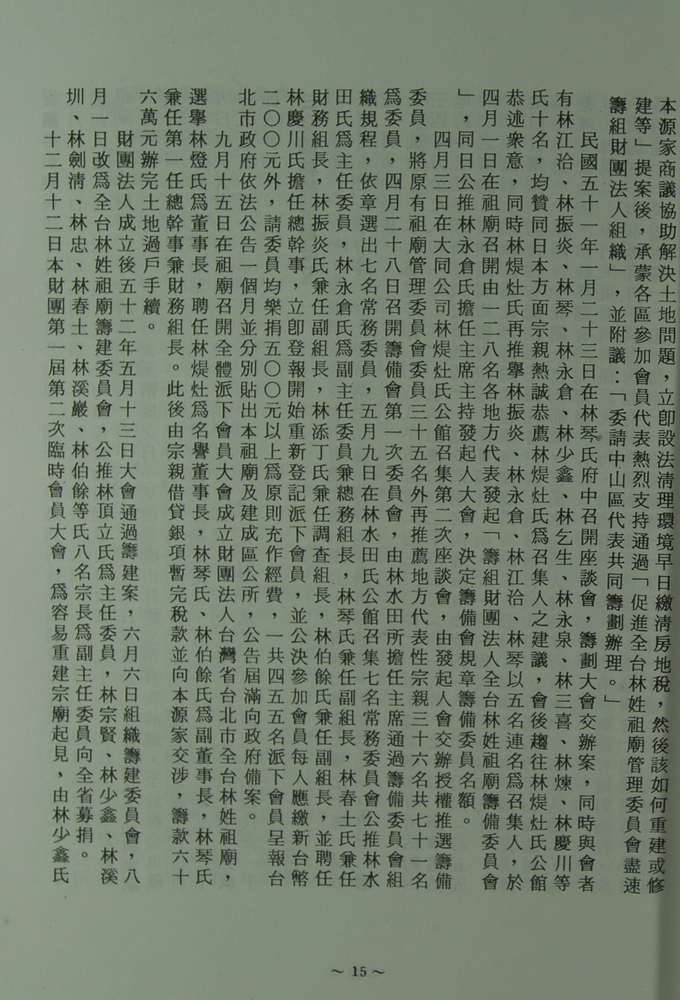 本源家商議協助解決土地問題，立卽設法淸理環境早日繳淸房地稅，然後該如何重建或修
建等」提案後，承蒙各區參加會員代表熱烈支持通過「促進全台林姓祖廟管理委員會盡速
籌組財團法人組織」，並附議：「委請中山區代表共同籌劃辦理。」
民國五十一年一月二十三日在林琴氏府中召開座談會，籌劃大會交辦案，同時與會者
有林江洽、林振炎、林琴、林永倉、林少鑫、林乞生、林永泉、林三喜、林煉、林慶川等
氏十名，均贊同日本方面宗親熱誠恭薦林煶灶氏為召集人之建議，會後趨往林煶灶氏公館
恭述衆意，同時林煶灶氏再推舉林振炎、林永倉、林江洽、林琴以五名連名為召集人，於
四月一日在祖廟召開由一二八名各地方代表發起「籌組財團法人全台林姓祖廟籌備委員會
」，同日公推林永倉氏擔任主席主持發起人大會，決定籌備會規章籌備委員名額。
四月三日在大同公司林煶灶氏公館召集第二次座談會，由發起人會交辦授權推選籌備
委員，將原有祖廟管理委員會委員三十五名外再推薦地方代表性宗親三十六名共七十一名
為委員，四月二十八日召開籌備會第一次委員會，由林水田所擔任主席通過籌備委員會組
織規程，依章選出七名常務委員，五月九日在林水田氏公館召集七名常務委員會公推林水
田氏為主任委員，林永倉氏為副主任委員兼總務組長，林琴氏兼任副組長，林春土氏兼任
財務組長，林振炎氏兼任副組長，林添丁氏兼任調查組長，林伯餘氏兼任副組長，並聘任
林慶川氏擔任總幹事，立卽登報開始重新登記派下會員，並公決參加會員每人應繳新台幣
二〇〇元外，請委員均樂捐五〇〇元以上為原則充作經費，一共四五五名派下會員呈報台
北市政府依法公告一個月並分別貼出本祖廟及建成區公所，公告屆滿向政府備案。
九月十五日在祖廟召開全體派下會員大會成立財團法人台灣省台北市全台林姓祖廟，
選舉林燈氏為董事長，聘任林煶灶為名譽董事長，林琴氏、林伯餘氏為副董事長，林琴氏
兼任第一任總幹事兼財務組長。此後由宗親借貸銀項暫完稅款並向本源家交涉，籌款六十
六萬元辦完土地過戶手續。
財團法人成立後五十二年五月十三日大會通過籌建案，六月六日組織籌建委員會，八
月一日改為全台林姓祖廟籌建委員會，公推林頂立氏為主任委員，林宗賢、林少鑫、林溪
圳、林劍淸、林忠、林春土、林溪巖、林伯餘等氏八名宗長為副主任委員向全省募捐。
十二月十二日本財團第一屆第二次臨時會員大會，為容易重建宗廟起見，由林少鑫氏
～15～